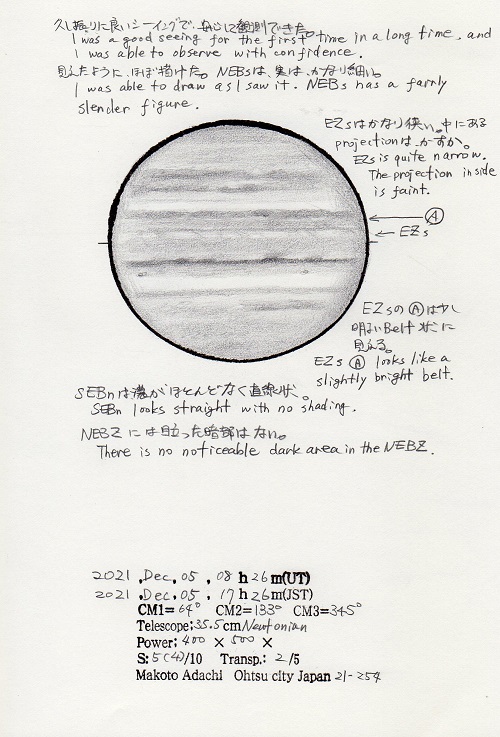 久し振りに良いシーイングで、安心して観測できた。
I was a good seeing for the first time in a long time, and
I was able to observe with confidence.
見えたように、ほぼ描けた。NEBsは、実は、かなり細い。
I was able to draw as I saw it. NEBs has a fairly
slender figure.
EZsはかなり狭い。中にある
projectionは、かすか。
EZs is quite narrow.
The projection inside
is faint.
Ⓐ
EZs
EZsのⒶは少し
明るいBelt状に
見える。
EZs Ⓐ looks like a
slightly bright belt.
SEBnは濃淡がほとんどなく直線状。
SEBn looks straight with no shading.
NEBZには目立った暗部はない。
There is no noticeable dark area in the NEBZ.
2021 ,Dec, 05 , 08 h 26 m(UT)
2021 ,Dec, 05 , 17 h 26 m(JST)
CM1= 64° CM2= 133° CM3= 345°
Telescope; 35.5 cm Newtonian
Power; 400 × 500 ×
S: 5(4)/10 Transp.: 2/5
Makoto Adachi Ohtsu city Japan 21-254